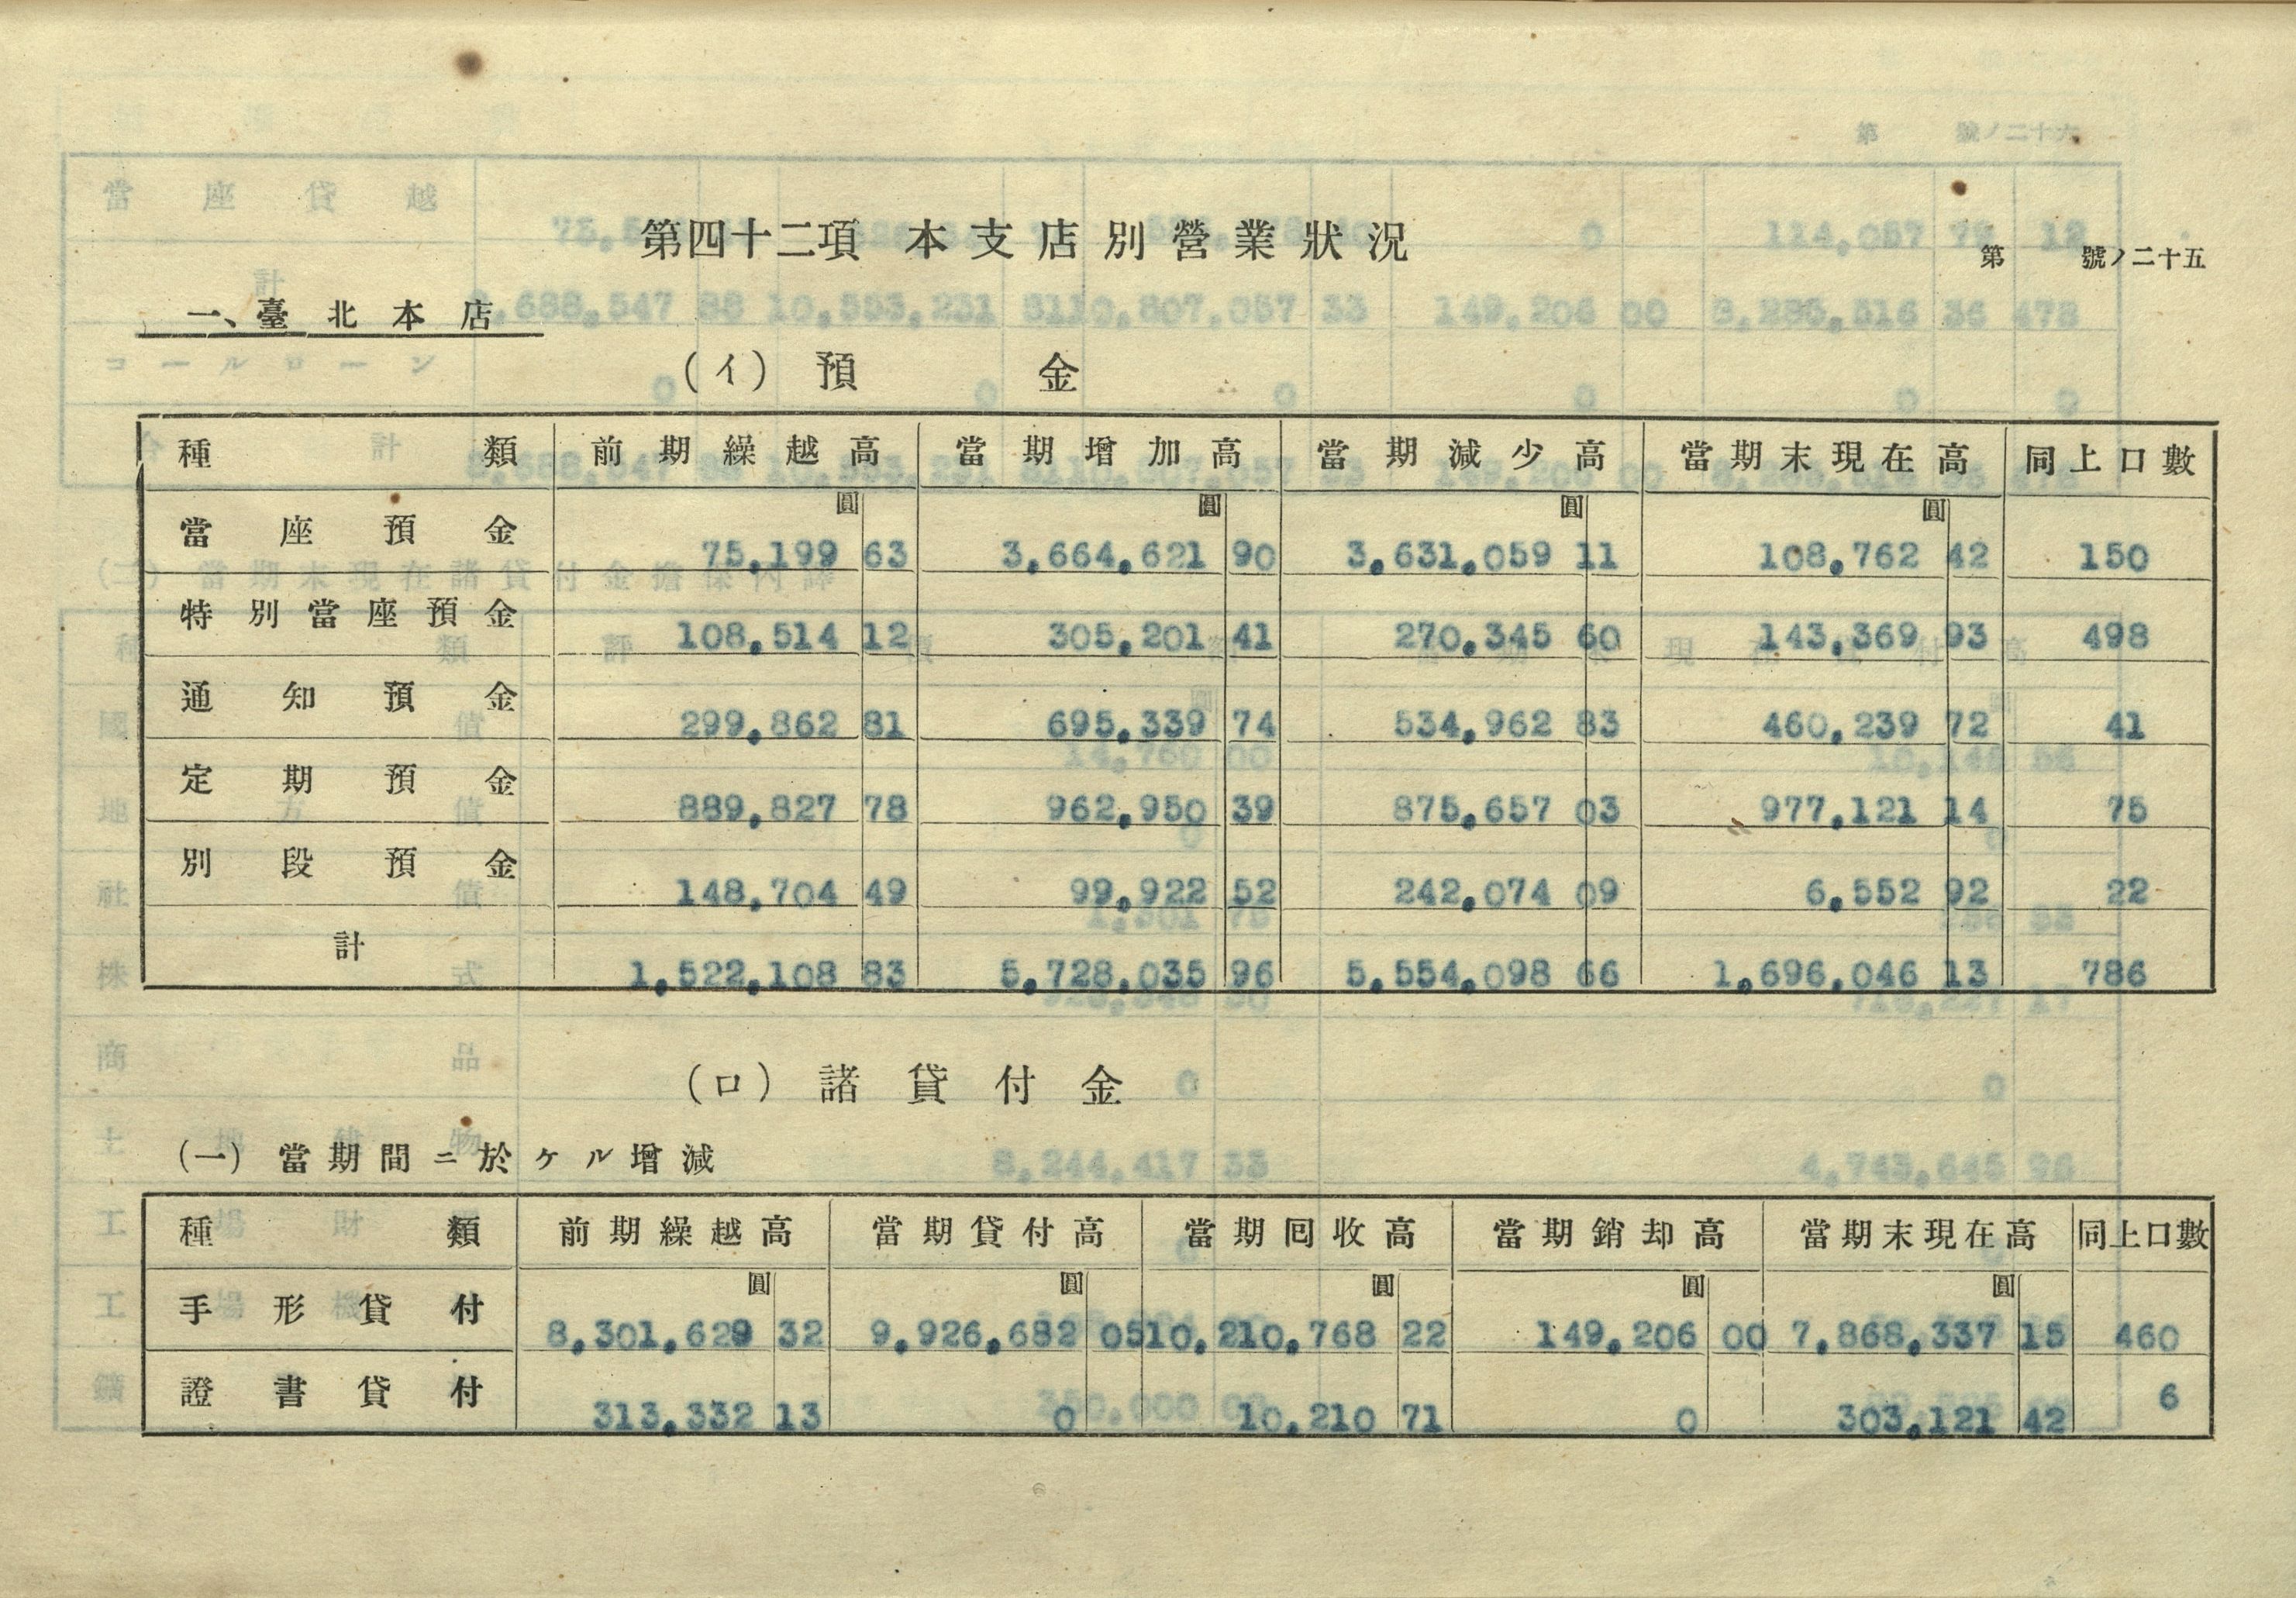 第 號ノ二十五
第四十二項 本支店別營業狀況
一、臺北本店
(イ) 預金
種類 前期繰越高 當期增加高 當期減少高 當期末現在高 同上口數
圓 圓 圓 圓
當座預金 75,199 63 3,664,621 90 3,631,059 11 108,762 42 150
特別當座預金 108,514 12 305,201 41 270,345 60 143,369 93 498
通知預金 299,862 81 695,339 74 534,962 83 460,239 72 41
定期預金 889,827 78 962,950 39 875,657 03 977,121 14 75
別段預金 148,704 49 99,922 52 242,074 09 6,552 92 22
計 1,522,108 83 5,728,035 96 5,554,098 66 1,696,046 13 786
(ロ) 諸貸付金
(一) 當期間ニ於ケル增減
種類 前期繰越高 當期貸付高 當期囘收高 當期銷却高 當期末現在高 同上口數
圓 圓 圓 圓 圓
手形貸付 8,301,629 32 9,926,682 05 10,210,768 22 149,206 00 7,868,337 15 460
證書貸付 313,332 13 0 10,210 71 0 303,121 42 6